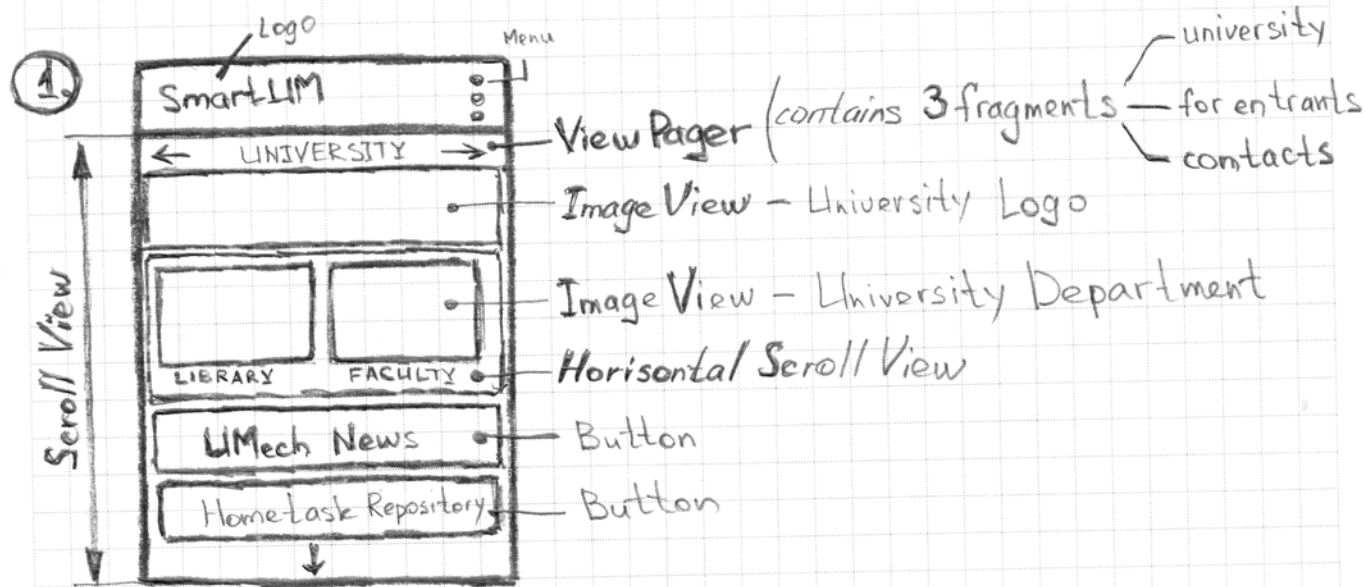 Logo
Menu
1
SmartUM
View Pager (contains 3 fragments
university
for entrants
contacts
← UNIVERSITY →
Image View - University Logo
Image View - University Department
LIBRARY FACULTY
Horisontal Scroll View
Scroll View
UMech News
Button
Hometask Repository
Button